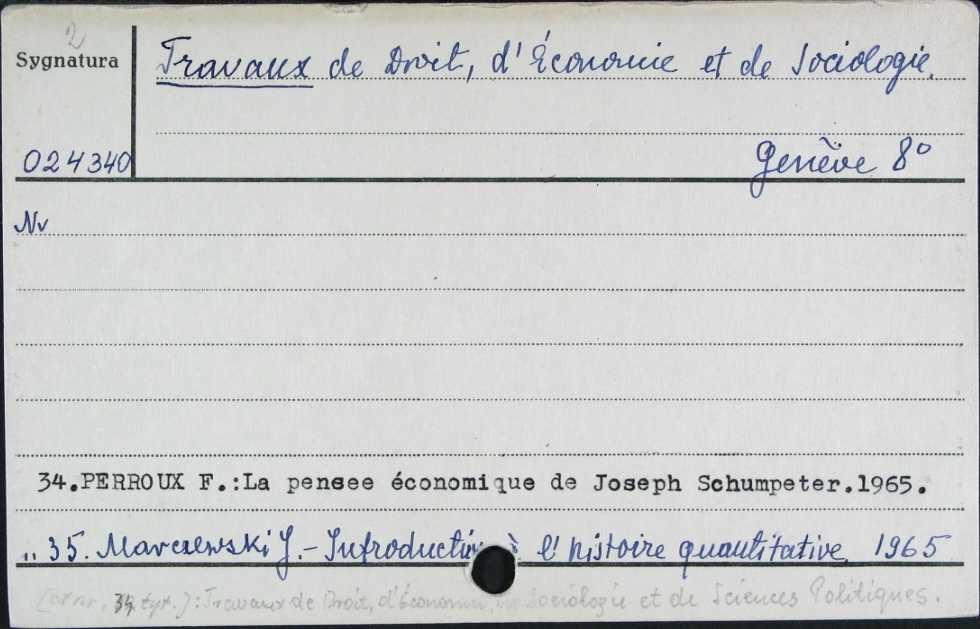 2
Sygnatura
Travaux de Droit, d'Économie et de Sociologie.
024340
Genève 8°
Nv
34.PERROUX F.:La pensee économique de Joseph Schumpeter.1965.
„ 35. Marczewski J. - Introduction à l'histoire quantitative. 1965
34, tyt.]: Travaux de Droit, d'Économie, de Sociologie et de Sciences Politiques.